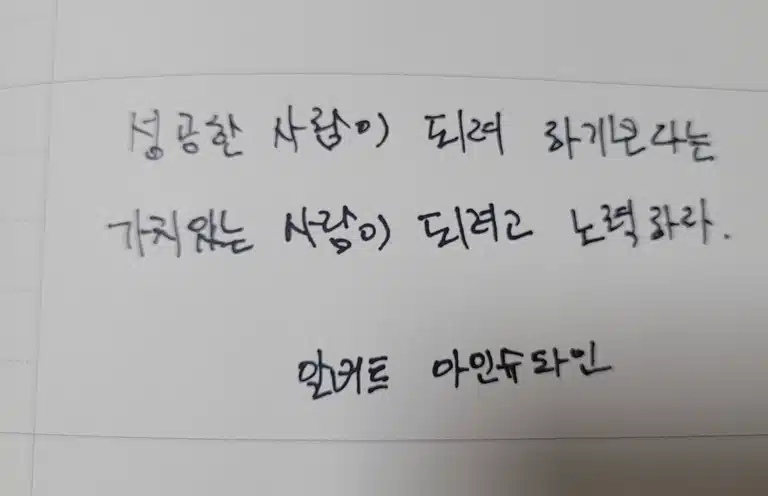 성공한 사람이 되려 하기보다는
가치있는 사람이 되려고 노력하라.
알버트 아인슈타인